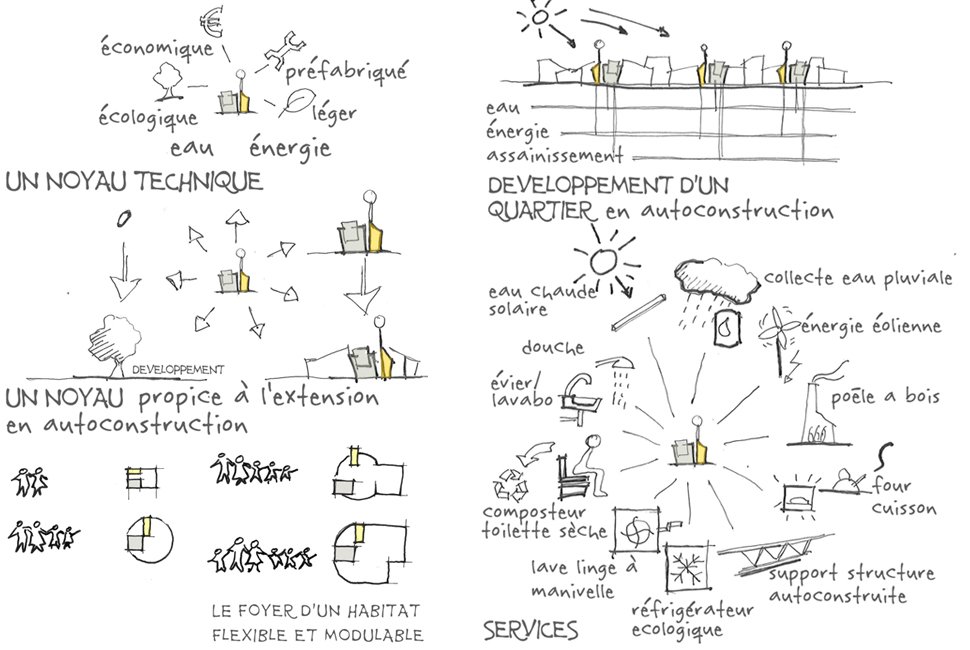 économique
préfabriqué
écologique
léger
eau énergie
UN NOYAU TECHNIQUE
DEVELOPPEMENT
UN NOYAU propice à l'extension
en autoconstruction
LE FOYER D'UN HABITAT
FLEXIBLE ET MODULABLE
eau
énergie
assainissement
DEVELOPPEMENT D'UN
QUARTIER en autoconstruction
eau chaude
solaire
collecte eau pluviale
énergie éolienne
douche
évier/
lavabo
poêle a bois
composteur
toilette sèche
four
cuisson
lave linge à
manivelle
support structure
autoconstruite
réfrigérateur
ecologique
SERVICES